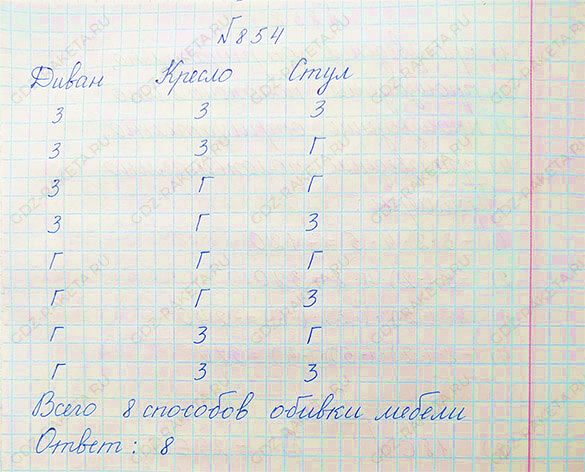 №854
Диван Кресло Стул
З З З
З З Г
З Г Г
З Г З
Г Г Г
Г Г З
Г З Г
Г З З
Всего 8 способов обивки мебели
Ответ: 8
GDZ-RAKETA.RU